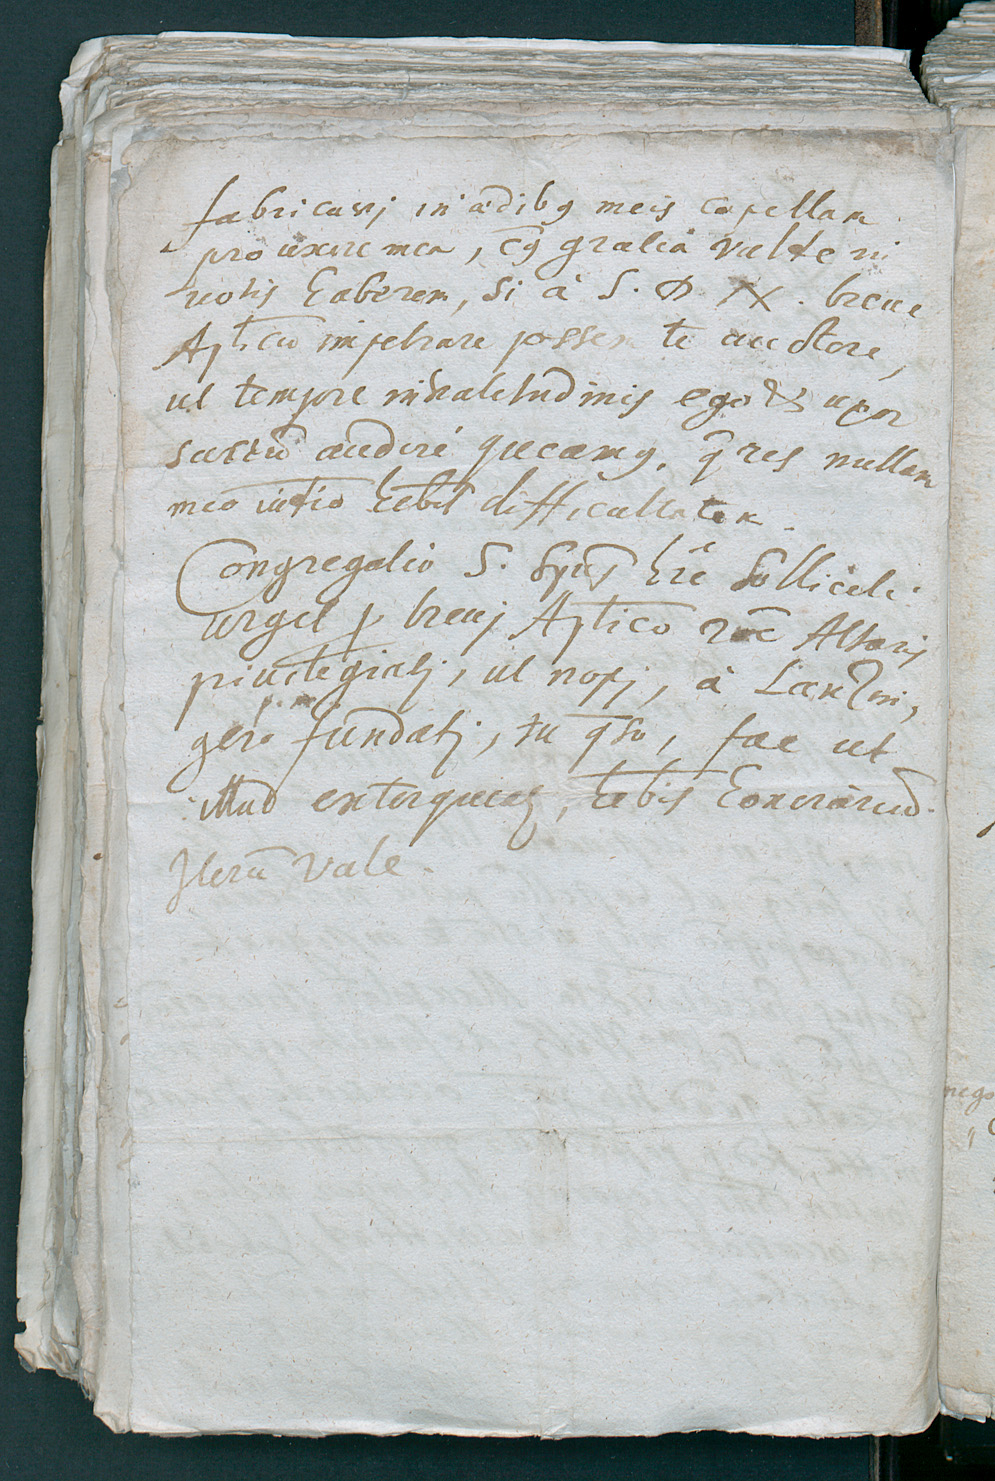 fabricavj in ædibq meis capellam
pro uxore mea, cq gratiâ valde in
votis haberem, si à S. D. N. breve
Apticũ impetrare possem te auctore,
ut tempore invaletudinis ego & uxor
sacrũ audire queamq. q̃ res nullam
meo iuditio hebit difficultatem.
Congregatio S. Spũs hic sollicite
urget p brevj Aptico rõe Altaris
privilegiatj, ut nostj, à
gero fundatj, tu q̃so, fac ut
illud extorqueas, habis honorariũ.
Iterũ Vale.
nego